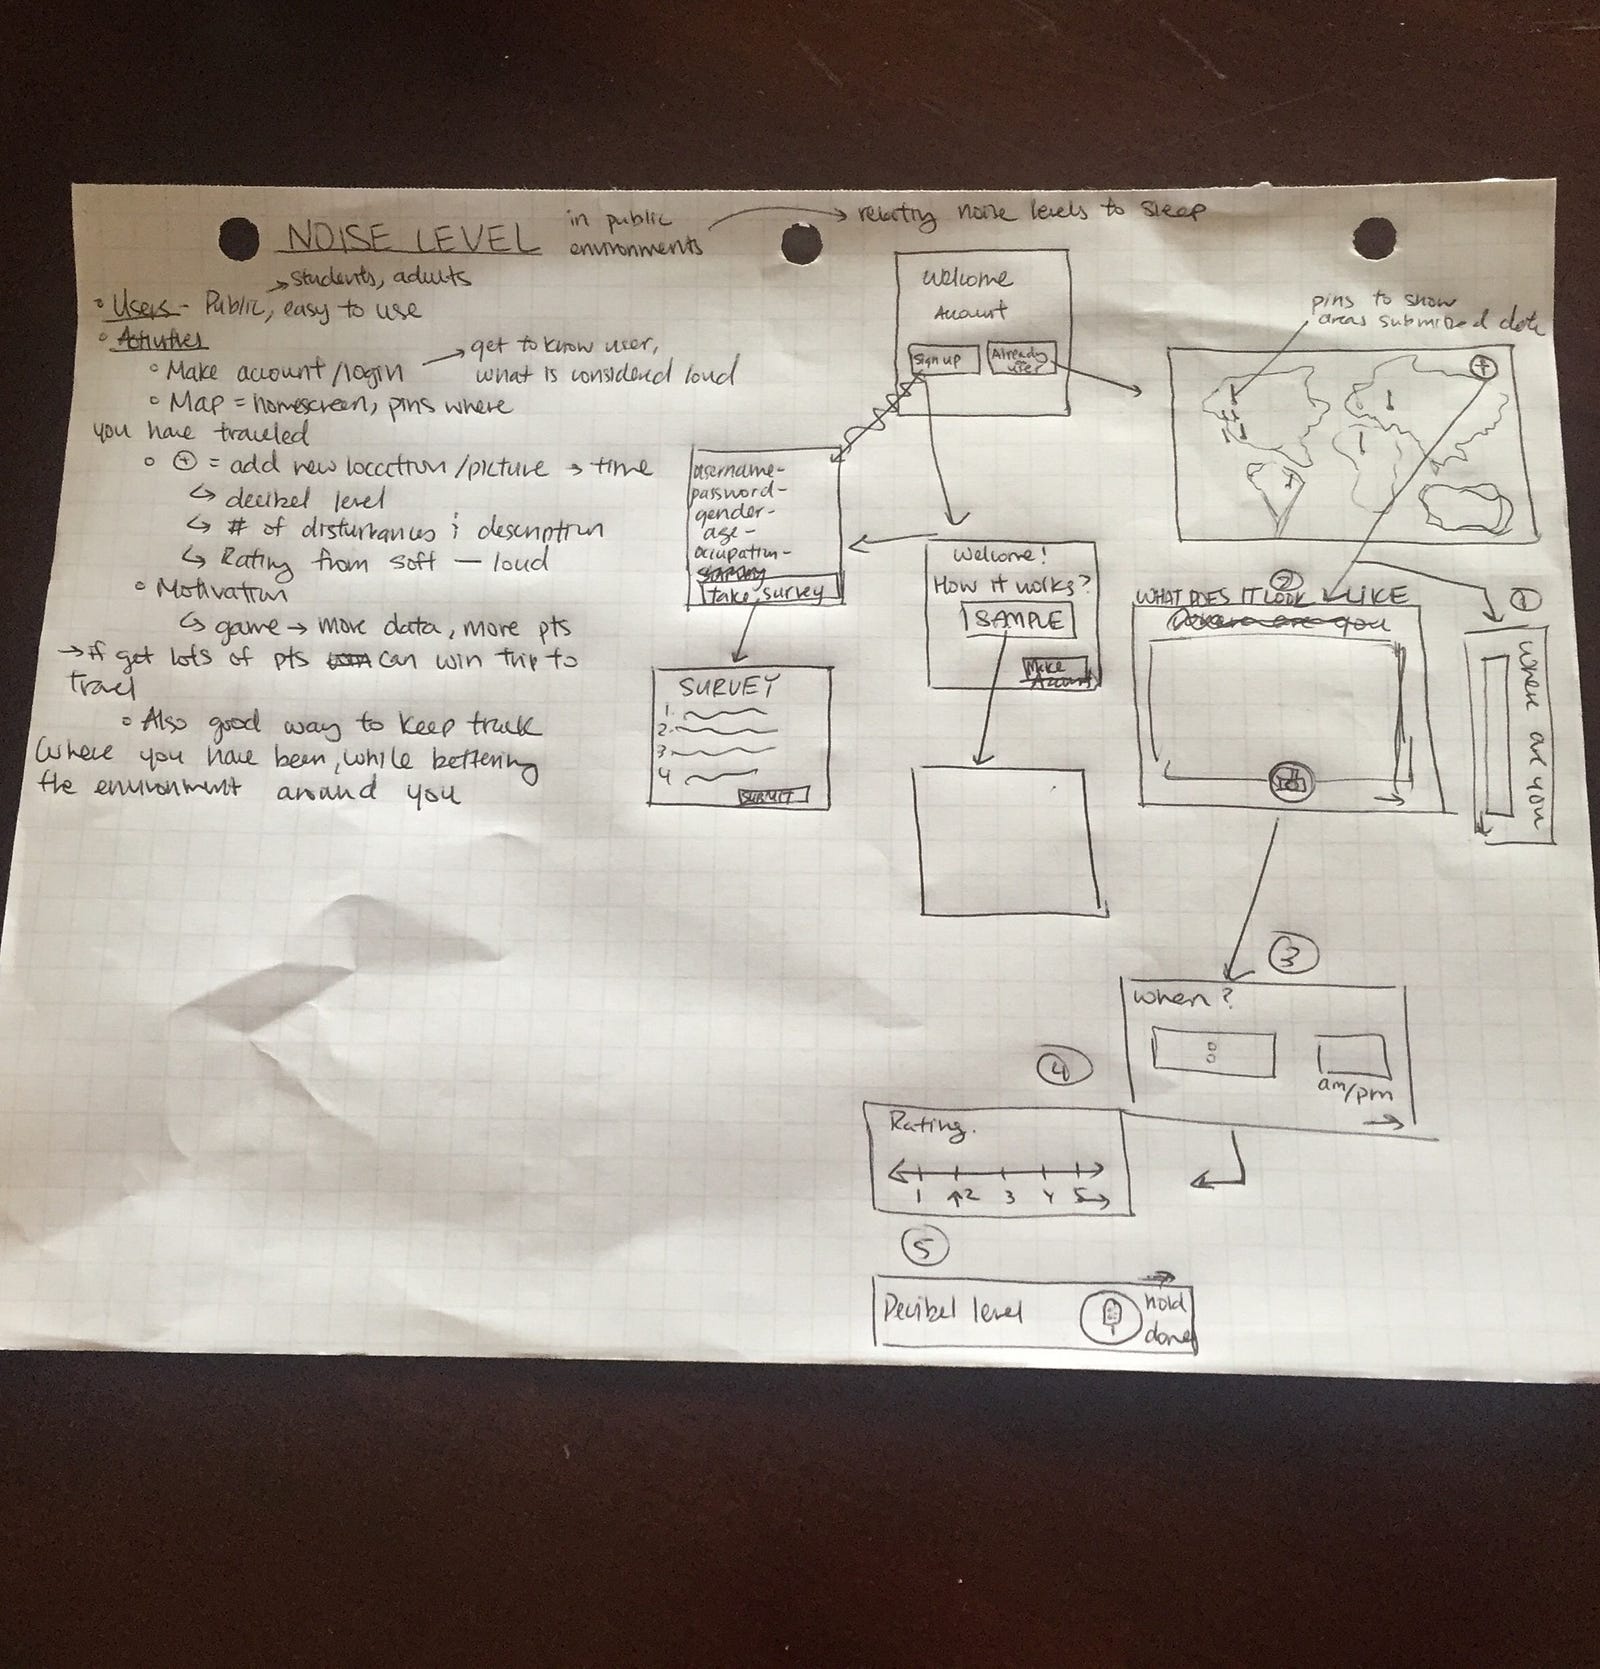 NOISE LEVEL
in public
environments
relating noise levels to sleep
students, adults
Users - Public, easy to use
Activities
Make account/login
get to know user,
what is considered loud
Map = homescreen, pins where
you have traveled
+ = add new location/picture → time
decibel level
# of disturbances & description
Rating from soft — loud
Motivation
game → more data, more pts
→ if get lots of pts can win trip to
travel
Also good way to keep track
where you have been, while bettering
the environment around you
Welcome
Account
Sign up
Already
user
pins to show
areas submitted data
+
username-
password-
gender-
age-
occupation-
take survey
SURVEY
1.
2.
3.
4
SUBMIT
Welcome!
How it works?
SAMPLE
Make
Account
1
where are you
2
WHAT DOES IT LOOK LIKE
Where are you
3
When?
am/pm
4
Rating.
1 2 3 4 5
5
Decibel level
hold
done